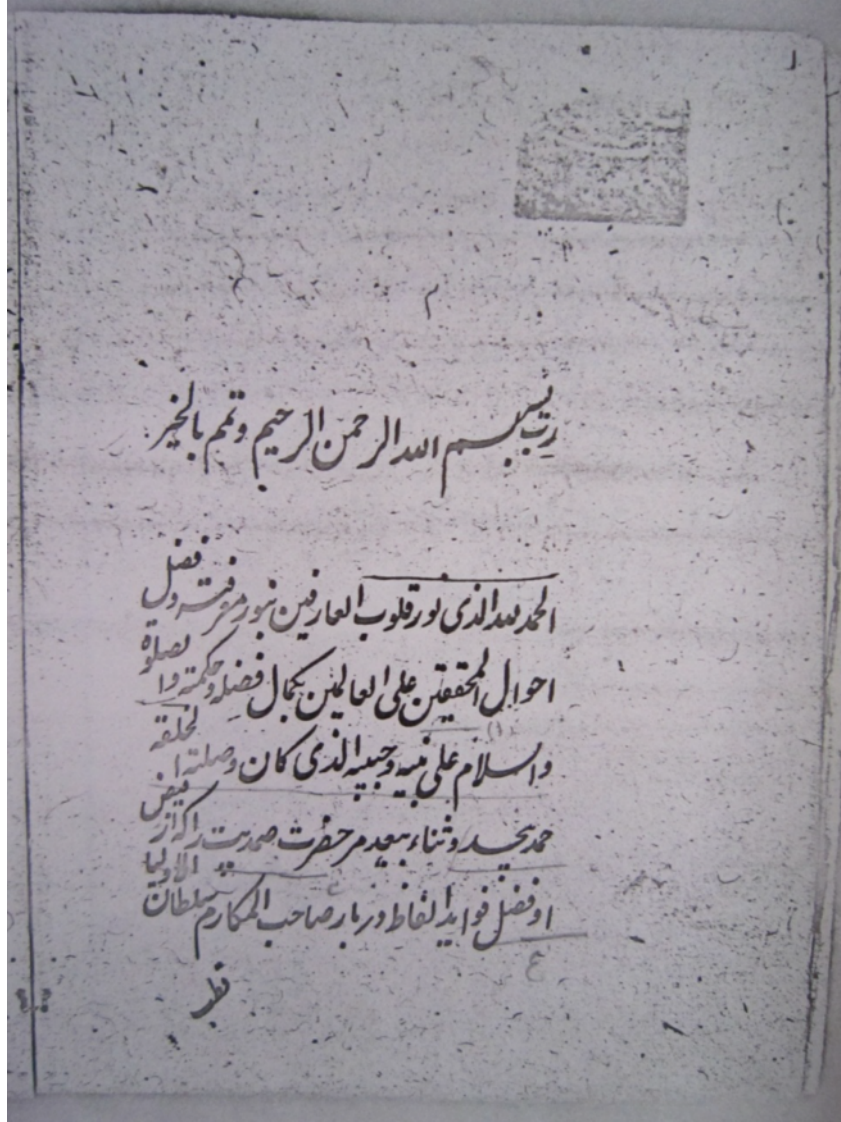 م
رب یسر بسم الله الرحمن الرحیم وتمم بالخیر
الحمد لله الذی نور قلوب العارفین بنور معرفته وفضل
احوال المحققین علی العالمین بکمال فضله وحکمته والصلوة
والسلام علی نبیه وحبیبه الذی کان وصلته لخلقه
حمد بیحد وثناء بیعد مر حضرت صمدیت را که از فیض
او فضل فواید الفاظ دربار صاحب المکارم سلطان الاولیا
قطب